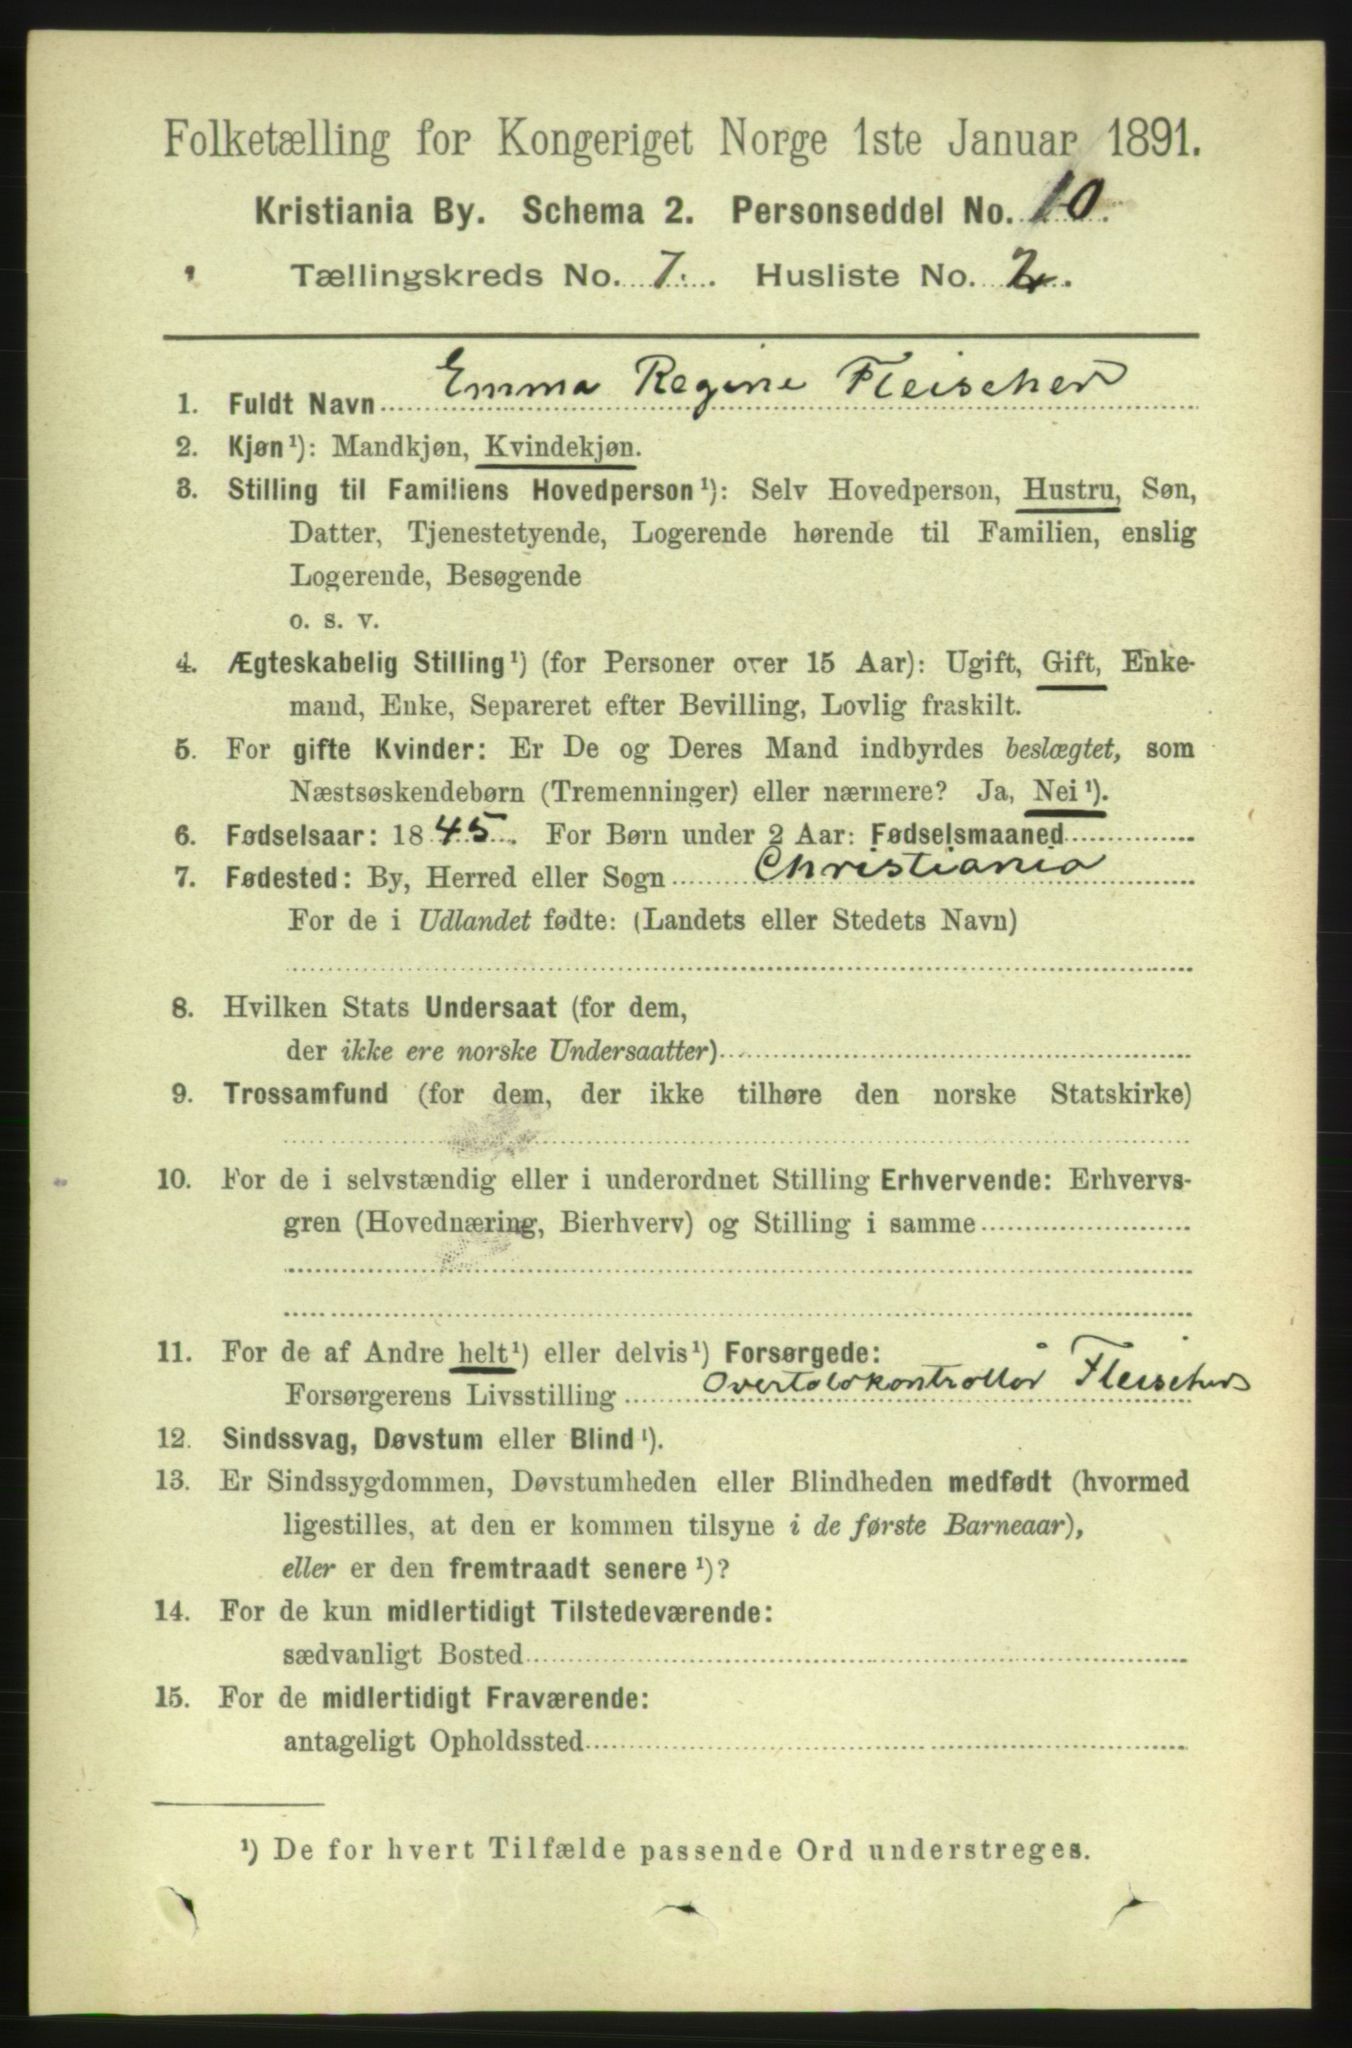 Folketælling for Kongeriget Norge 1ste Januar 1891.
Kristiania By. Schema 2. Personseddel No. 10.
Tællingskreds No. 7. Husliste No. 2.
1. Fuldt Navn Emma Regine Fleischer
2. Kjøn¹): Mandkjøn, Kvindekjøn.
3. Stilling til Familiens Hovedperson¹): Selv Hovedperson, Hustru, Søn,
Datter, Tjenestetyende, Logerende hørende til Familien, enslig
Logerende, Besøgende
o. s. v.
4. Ægteskabelig Stilling¹) (for Personer over 15 Aar): Ugift, Gift, Enke-
mand, Enke, Separeret efter Bevilling, Lovlig fraskilt.
5. For gifte Kvinder: Er De og Deres Mand indbyrdes beslægtet, som
Næstsøskendebørn (Tremenninger) eller nærmere? Ja, Nei¹).
6. Fødselsaar: 1845. For Børn under 2 Aar: Fødselsmaaned
7. Fødested: By, Herred eller Sogn Christiania
For de i Udlandet fødte: (Landets eller Stedets Navn)
8. Hvilken Stats Undersaat (for dem,
der ikke ere norske Undersaatter)
9. Trossamfund (for dem, der ikke tilhøre den norske Statskirke)
10. For de i selvstændig eller i underordnet Stilling Erhvervende: Erhvervs-
gren (Hovednæring, Bierhverv) og Stilling i samme
11. For de af Andre helt¹) eller delvis¹) Forsørgede:
Forsørgerens Livsstilling Overtoldkontrollör Fleischer
12. Sindssvag, Døvstum eller Blind¹).
13. Er Sindssygdommen, Døvstumheden eller Blindheden medfødt (hvormed
ligestilles, at den er kommen tilsyne i de første Barneaar),
eller er den fremtraadt senere¹)?
14. For de kun midlertidigt Tilstedeværende:
sædvanligt Bosted
15. For de midlertidigt Fraværende:
antageligt Opholdssted
¹) De for hvert Tilfælde passende Ord understreges.